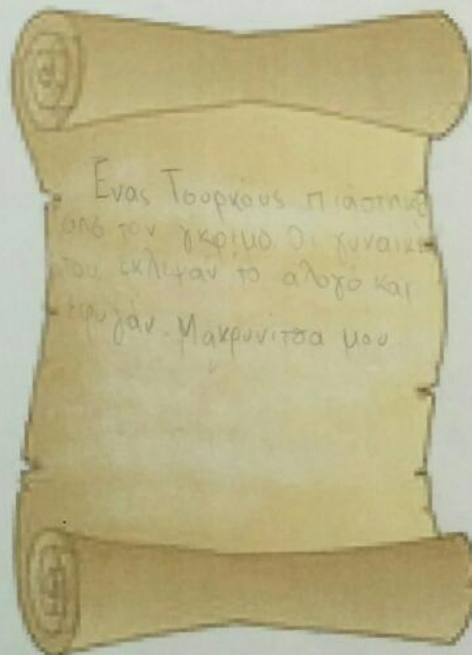 Ενας Τουρκους πιάστηκε
από τον γκρίμο Οι γυναίκε
του έκλεψαν το αλογο και
εφυγάν. Μακρυνίτσα μου